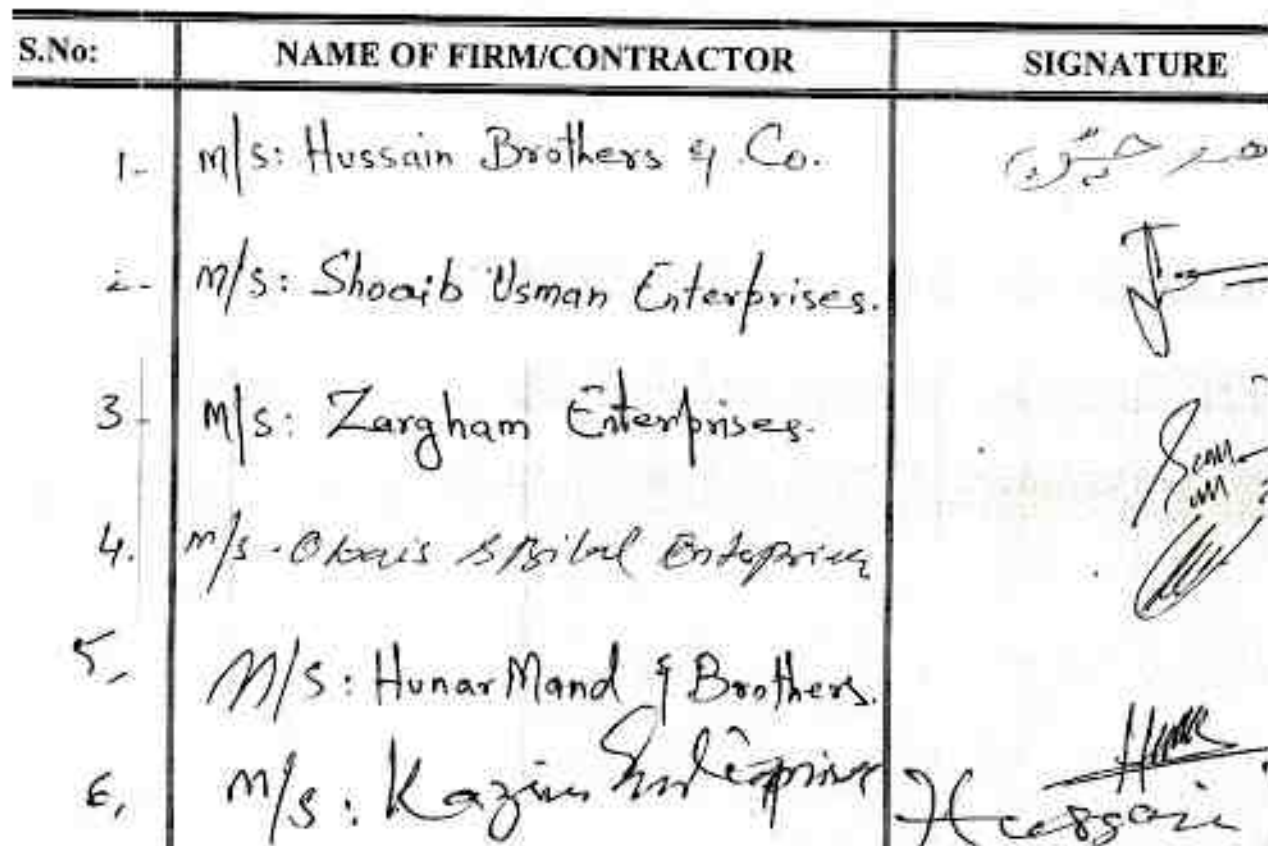 S.No: NAME OF FIRM/CONTRACTOR SIGNATURE
1- M/S: Hussain Brothers & Co.
2- M/S: Shoaib Usman Enterprises.
3- M/S: Zargham Enterprises.
4. M/S- & Bilal
5, M/S: Hunar Mand & Brothers.
6, M/S: Kazim Hussain